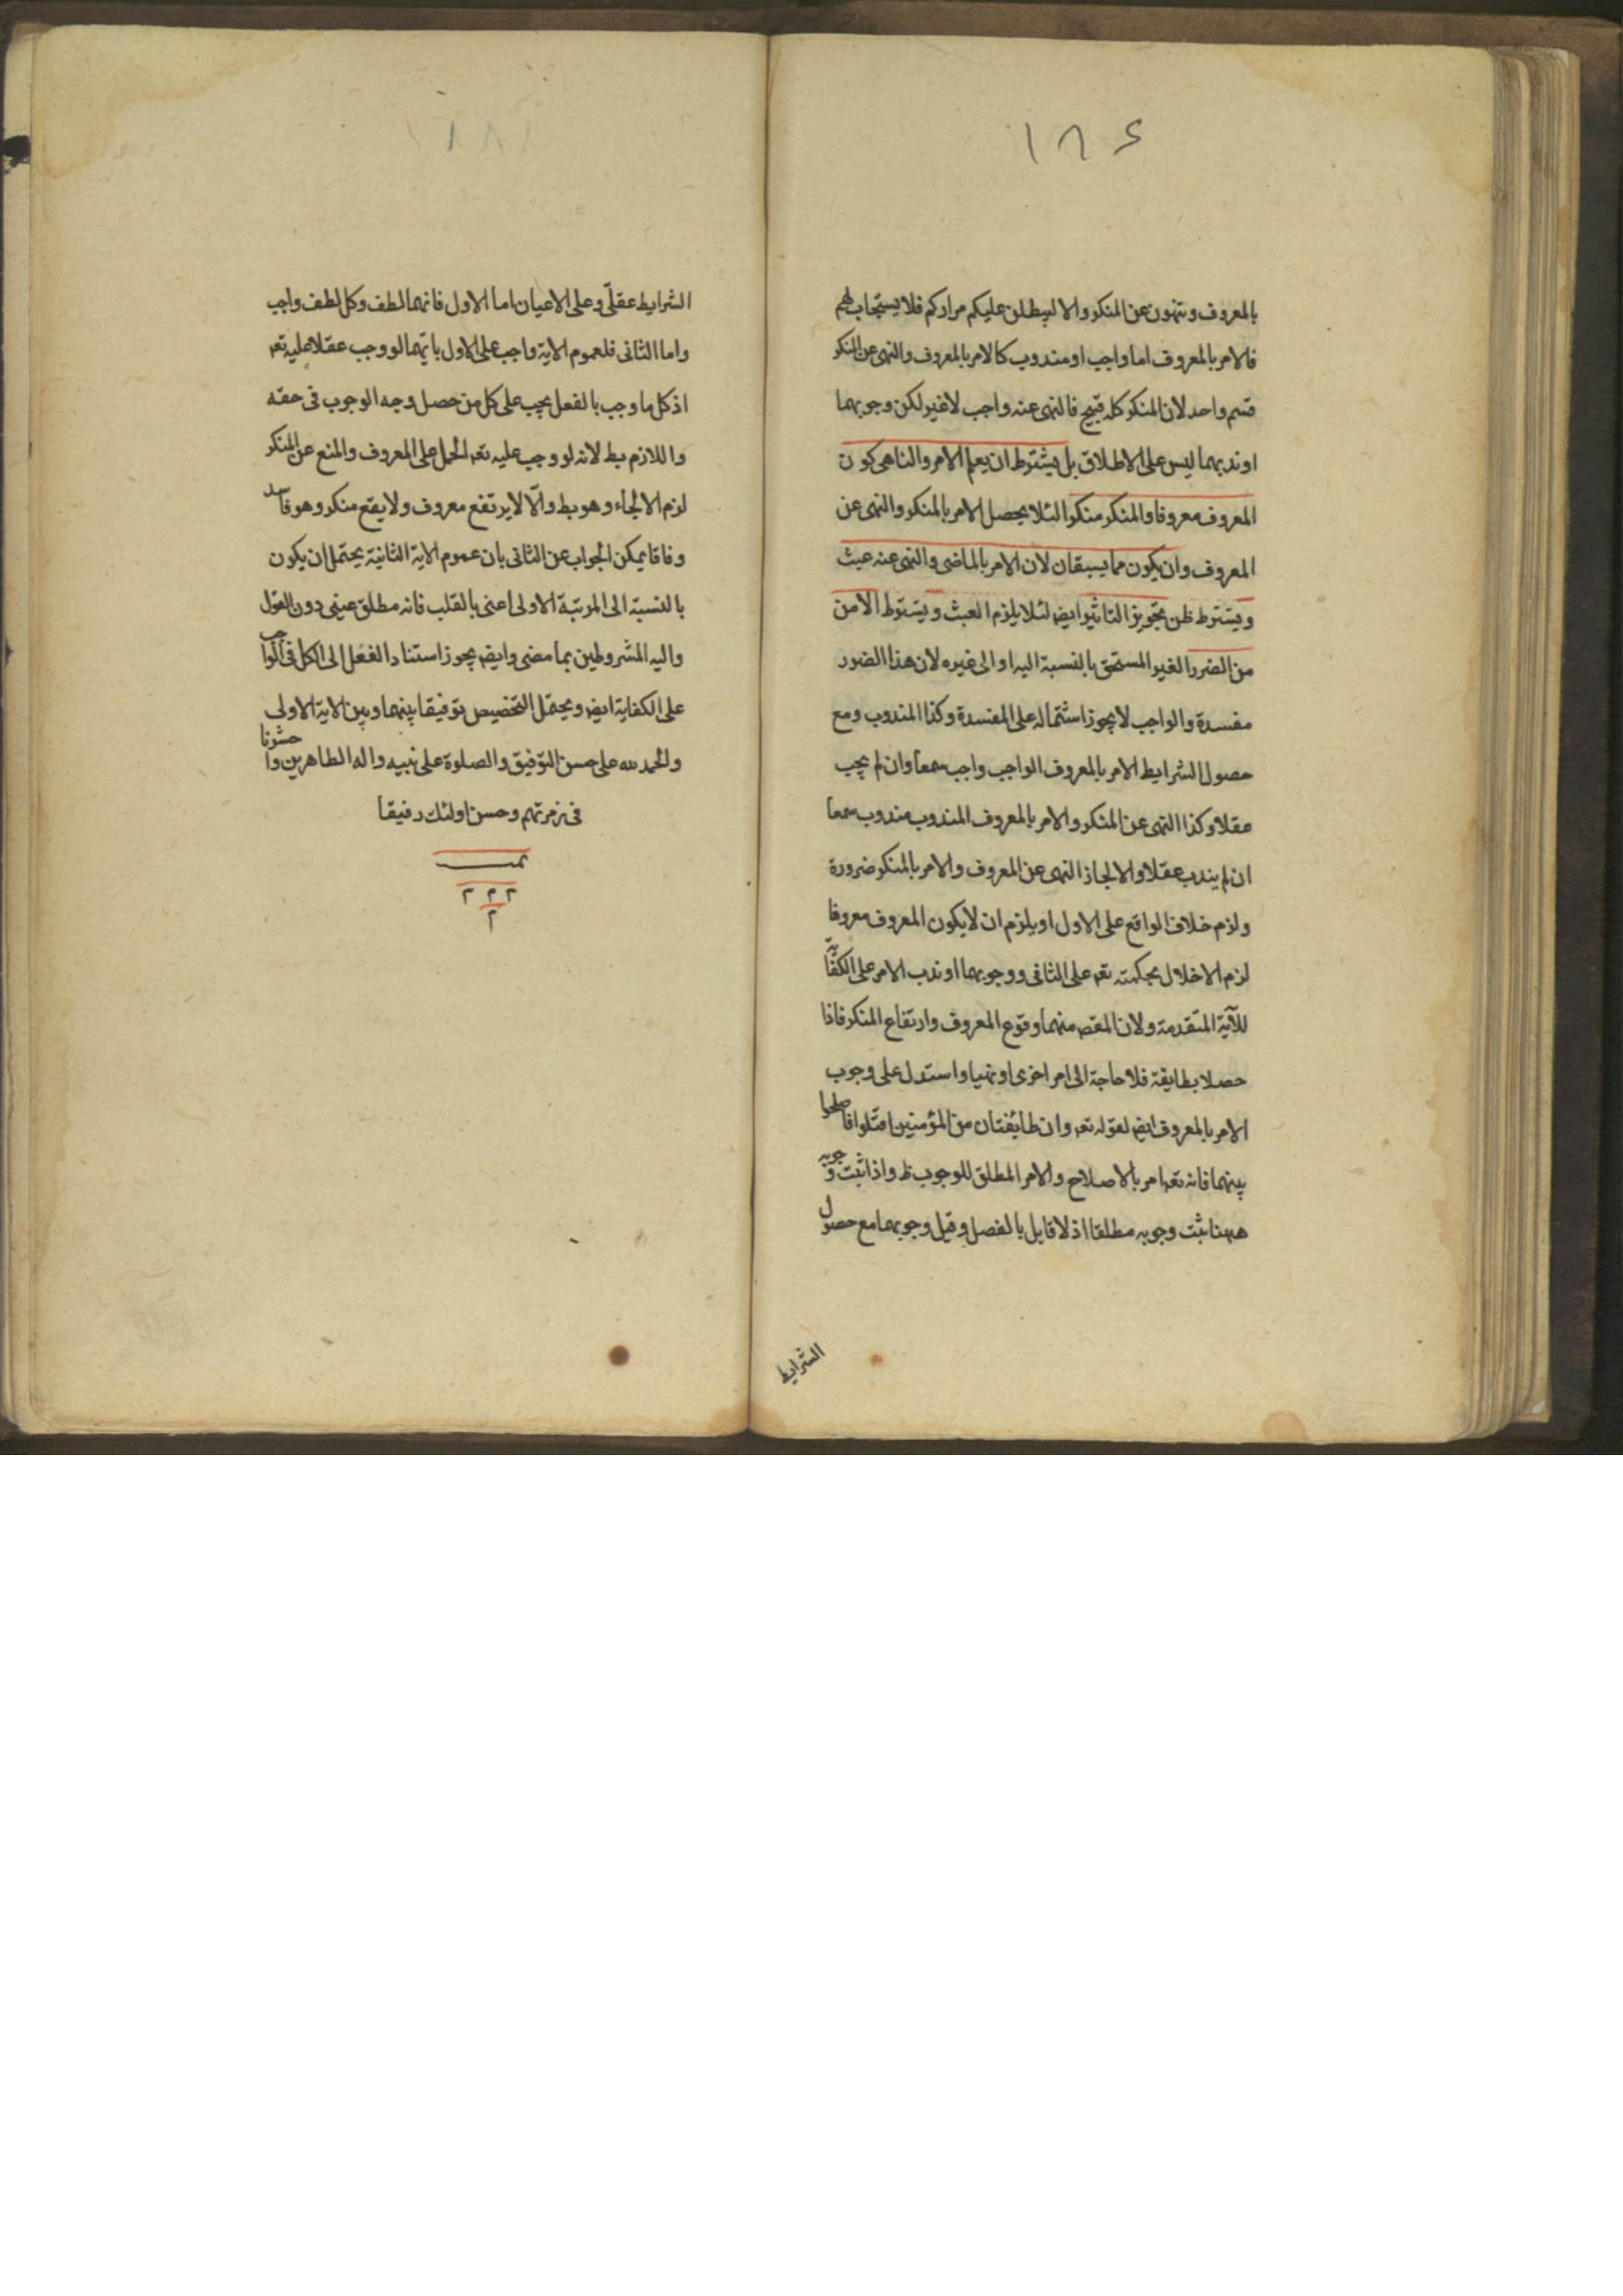 ١٨٤
بالمعروف وتنهون عن المنكر والا ليطلن عليكم مراركم فلا يستجاب لهم
فالامر بالمعروف اما واجب او مندوب كالامر بالمعروف والنهى عن المنكر
قسم واحد لان المنكر كله قبيح فالنهى عنه واجب لا غير لكن وجوبهما
او ندبهما ليس على الاطلاق بل يشترط ان يعلم الامر والناهى كون
المعروف معروفا والمنكر منكرا لئلا يحصل الامر بالمنكر والنهى عن
المعروف وان يكون مما يسبقان لان الامر بالماضى والنهى عنه عبث
ويشترط ظن تجويز التاثير ايض لئلا يلزم العبث ويشترط الامن
من الضرر الغير المستحق بالنسبة اليه او الى غيره لان هذا الضرر
مفسدة والواجب لا يجوز اشتماله على المفسدة وكذا المندوب ومع
حصول الشرايط الامر بالمعروف الواجب واجب سمعا وان لم يجب
عقلا وكذا النهى عن المنكر والامر بالمعروف المندوب مندوب سمعا
ان لم يندب عقلا والا لجاز النهى عن المعروف والامر بالمنكر ضرورة
ولزم خلاف الواقع على الاول او يلزم ان لا يكون المعروف معروفا
لزم الاخلال بحكمته تعه على الثانى ووجوبهما او ندب الامر على الكفاية
للآية المتقدمة ولان المقصه منهما وقوع المعروف وارتفاع المنكر فاذا
حصلا بطايفة فلا حاجة الى امر اخرى او نهيا واستدل على وجوب
الامر بالمعروف ايض لقوله تعه وان طائفتان من المؤمنين اقتلوا فاصلحوا
بينهما فانه تعه امر بالاصلاح والامر المطلق للوجوب ظ واذا ثبت وجوبه
ههنا ثبت وجوبه مطلقا اذ لا قايل بالفصل وقيل وجوبهما مع حصول
الشرايط
الشرايط عقلى وعلى الاعيان اما الاول فانهما لطف وكل لطف واجب
واما الثانى فلعموم الاية واجب على الاول بانهما لو وجب عقلا عليه تعه
اذ كل ما وجب بالفعل يجب على كل من حصل وجه الوجوب فى حقه
واللازم بط لانه لو وجب عليه تعه الحمل على المعروف والمنع عن المنكر
لزم الالجاء وهو بط والّا لا يرتفع معروف ولا يقع منكر وهو فاسد
وفاقا يمكن الجواب عن الثانى بان عموم الاية الثانية يحتمل ان يكون
بالنسبة الى المرتبة الاولى اعنى بالقلب فانه مطلق عينى دون القول
واليه المشروطين بما مضى وايض يجوز استناد الفعل الى الكل فى الواجب
على الكفاية ايض ويحتمل التخصيص توفيقا بينهما وبين الاية الاولى
والحمد لله على حسن التوفيق والصلوة على نبيه واله الطاهرين واحشرنا
فى زمرتهم وحسن اولئك رفيقا
تمت
٢ ٢ ٢
٢